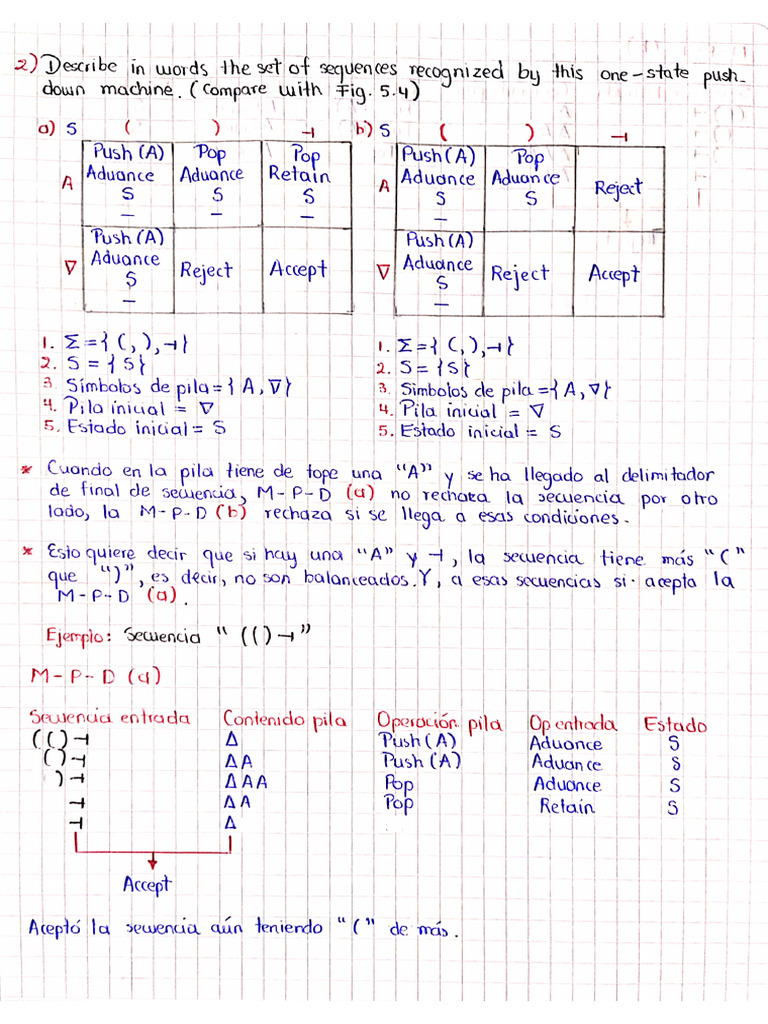 2) Describe in words the set of sequences recognized by this one-state push-
down machine. (Compare with Fig. 5.4)
a) S ( ) ⊣ b) S ( ) ⊣
Push (A) Pop Pop Push(A) Pop
A Aduance Aduance Retain A Aduance Aduance Reject
S S S S S
— — — —
Push (A) Push(A)
∇ Aduance Reject Accept ∇ Aduance Reject Accept
S S
— —
1. Σ={ (, ), ⊣} 1. Σ={ (, ), ⊣}
2. S = { S} 2. S= {S}
3. Símbolos de pila = { A, ∇} 3. Simbolos de pila = {A, ∇}
4. Pila inicial = ∇ 4. Pila inicial = ∇
5. Estado inicial = S 5. Estado inicial = S
* Cuando en la pila tiene de tope una "A" y se ha llegado al delimitador
de final de secuencia, M-P-D (a) no rechaza la secuencia por otro
lado, la M-P-D (b) rechaza si se llega a esas condiciones.
* Esto quiere decir que si hay una "A" y ⊣, la secuencia tiene más "("
que ")", es decir, no son balanceados. Y, a esas secuencias si acepta la
M-P-D (a).
Ejemplo: Secuencia " (() ⊣ "
M-P-D (a)
Secuencia entrada Contenido pila Operación pila Op entrada Estado
(()⊣ Δ Push (A) Aduance S
()⊣ ΔA Push (A) Aduance S
)⊣ ΔAA Pop Aduance S
⊣ ΔA Pop Retain S
⊣ Δ
Accept
Aceptó la secuencia aún teniendo "(" de más.